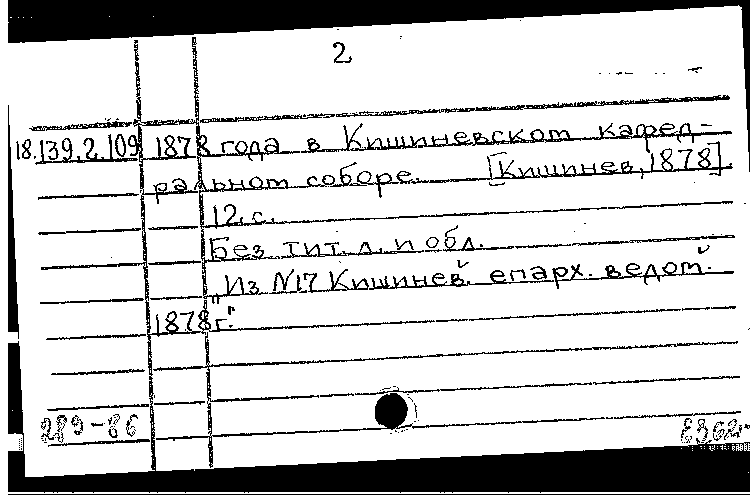 2
18.139.2.109 1878 года в Кишиневском кафед-
ральном соборе. [Кишинев, 1878].
12.с.
Без тит. л. и обл.
„Из N17 Кишинев. епарх. ведом.
1878г."
289-86